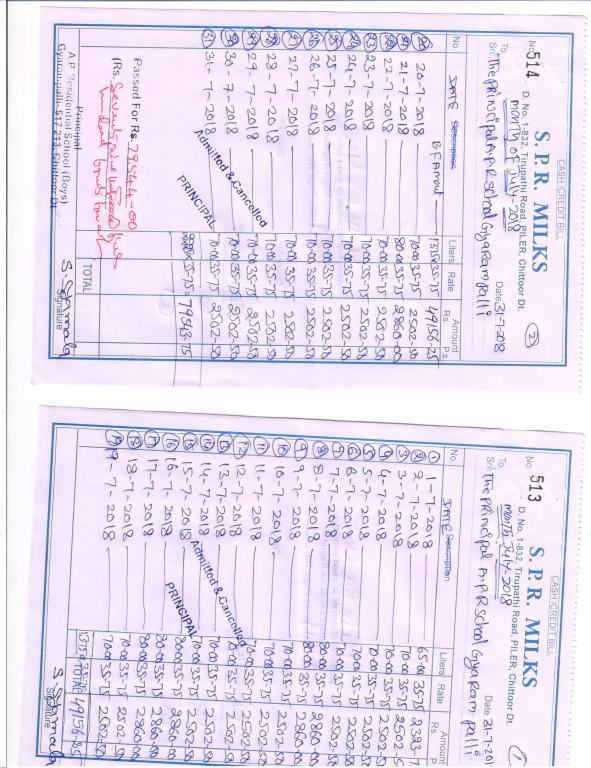 CASH /CREDIT BILL
No 514
S. P. R. MILKS
D. No. 1-832, Tirupathi Road, PILER, Chittoor Dt.
month of July-2018
Date 31-7-2018
2
To
Sri The principal A.P.R School Gyarampalli
No DATE Description Liters Rate Amount Rs Ps
B.F Amount 1375 35-75 49156-25
20 20-7-2018 70-00 35-75 2502-50
21 21-7-2018 80-00 35-75 2860-00
22 22-7-2018 70-00 35-75 2502-50
23 23-7-2018 70-00 35-75 2502-50
24 24-7-2018 70-00 35-75 2502-50
25 25-7-2018 70-00 35-75 2502-50
26 26-7-2018 70-00 35-75 2502-50
27 27-7-2018 70-00 35-75 2502-50
28 28-7-2018 70-00 35-75 2502-50
29 29-7-2018 70-00 35-75 2502-50
30 30-7-2018 70-00 35-75 2502-50
31 31-7-2018 70-00 35-75 2502-50
Admitted & Cancelled
PRINCIPAL
35-75 79543-75
TOTAL
Passed For Rs. 79544-00
(Rs. Seventy nine thousand five hundred fourty four
Principal
A.P. Residential School (Boys)
Gyarampalli-517 213, Chittoor Dt.
S. Shamala
Signature
CASH /CREDIT BILL
No 513
S. P. R. MILKS
D. No. 1-832, Tirupathi Road, PILER, Chittoor Dt.
month July-2018
Date 31-7-201
1
To
Sri The principal A.P.R School Gyarampalli
No DATE Description Liters Rate Amount Rs P
1 1-7-2018 65-00 35-75 2323-7
2 2-7-2018 70-00 35-75 2502-5
3 3-7-2018 70-00 35-75 2502-5
4 4-7-2018 70-00 35-75 2502-5
5 5-7-2018 70-00 35-75 2502-5
6 6-7-2018 70-00 35-75 2502-5
7 7-7-2018 70-00 35-75 2502-5
8 8-7-2018 80-00 35-75 2860-00
9 9-7-2018 80-00 35-75 2860-00
10 10-7-2018 70-00 35-75 2502-50
11 11-7-2018 70-00 35-75 2502-50
12 12-7-2018 70-00 35-75 2502-50
13 13-7-2018 70-00 35-75 2502-50
14 14-7-2018 70-00 35-75 2502-50
15 15-7-2018 80-00 35-75 2860-00
16 16-7-2018 80-00 35-75 2860-00
17 17-7-2018 80-00 35-75 2860-00
18 18-7-2018 70-00 35-75 2502-50
19 19-7-2018 70-00 35-75 2502-50
Admitted & Cancelled
PRINCIPAL
1375 35-75 TOTAL 49156-25
S. Shamala
Signature